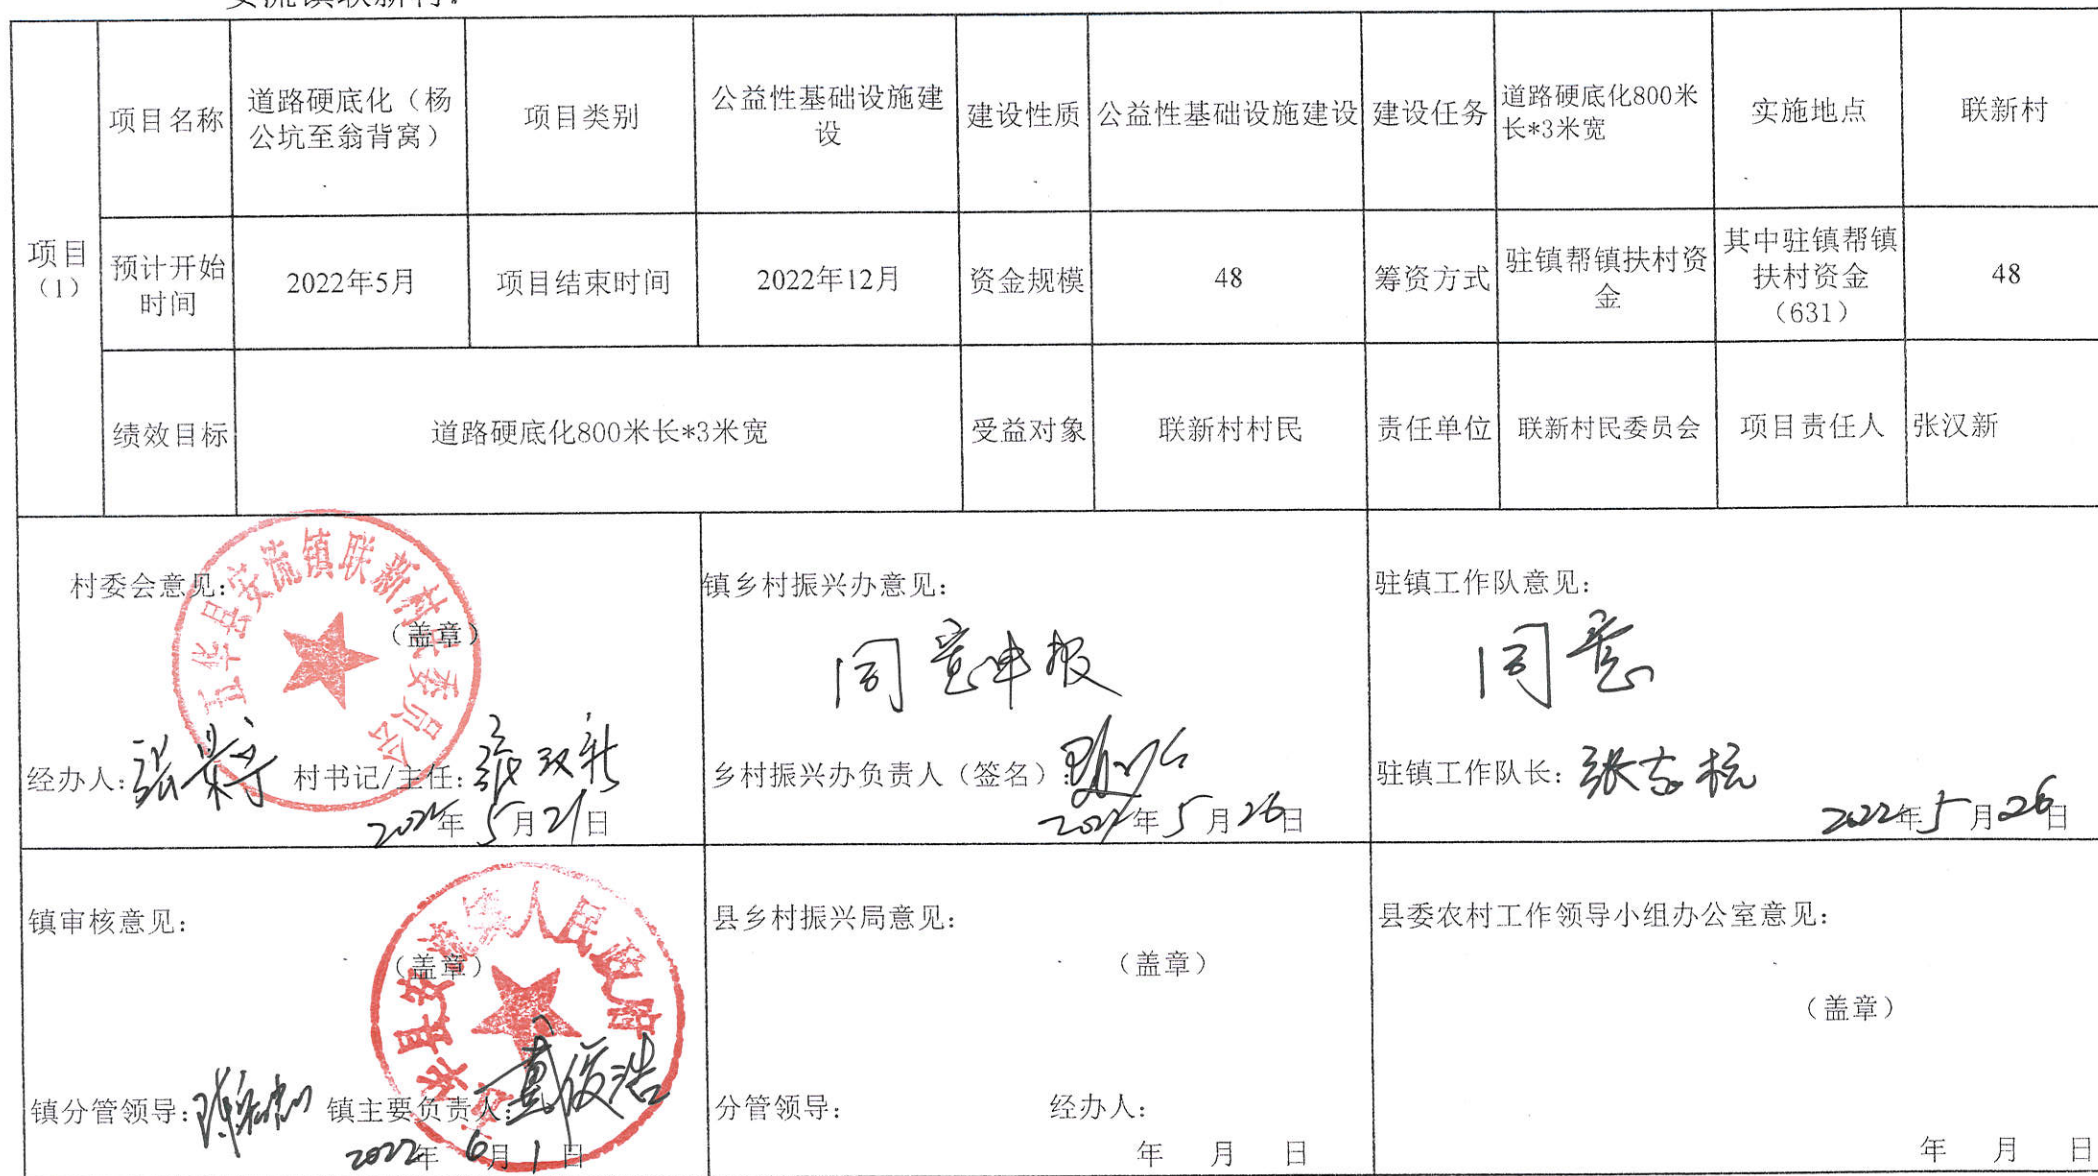 安流镇联新村:
项目（1）
项目名称
道路硬底化（杨
公坑至翁背窝）
项目类别
公益性基础设施建
设
建设性质
公益性基础设施建设
建设任务
道路硬底化800米
长*3米宽
实施地点
联新村
预计开始
时间
2022年5月
项目结束时间
2022年12月
资金规模
48
筹资方式
驻镇帮镇扶村资
金
其中驻镇帮镇
扶村资金
（631）
48
绩效目标
道路硬底化800米长*3米宽
受益对象
联新村村民
责任单位
联新村民委员会
项目责任人
张汉新
村委会意见:
（盖章）
五华县安流镇联新村民委员会
经办人: 村书记/主任: 张汉新
2022年5月21日
镇乡村振兴办意见:
同意申报
乡村振兴办负责人（签名）:
2022年5月26日
驻镇工作队意见:
同意
驻镇工作队长:
2022年5月26日
镇审核意见:
（盖章）
五华县安流镇人民政府
镇分管领导: 镇主要负责人:
2022年6月1日
县乡村振兴局意见:
（盖章）
分管领导: 经办人:
年 月 日
县委农村工作领导小组办公室意见:
（盖章）
年 月 日